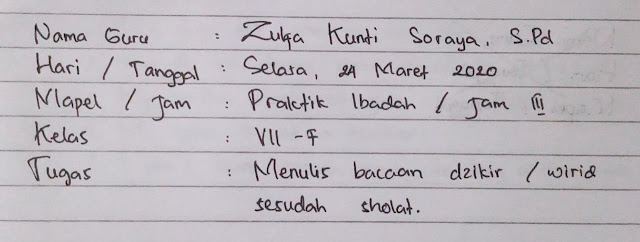 Nama Guru : Zulfa Kunti Soraya, S.Pd
Hari / Tanggal : Selasa, 24 Maret 2020
Mapel / Jam : Praktik Ibadah / Jam III
Kelas : VII - F
Tugas : Menulis bacaan dzikir / wirid
sesudah sholat.